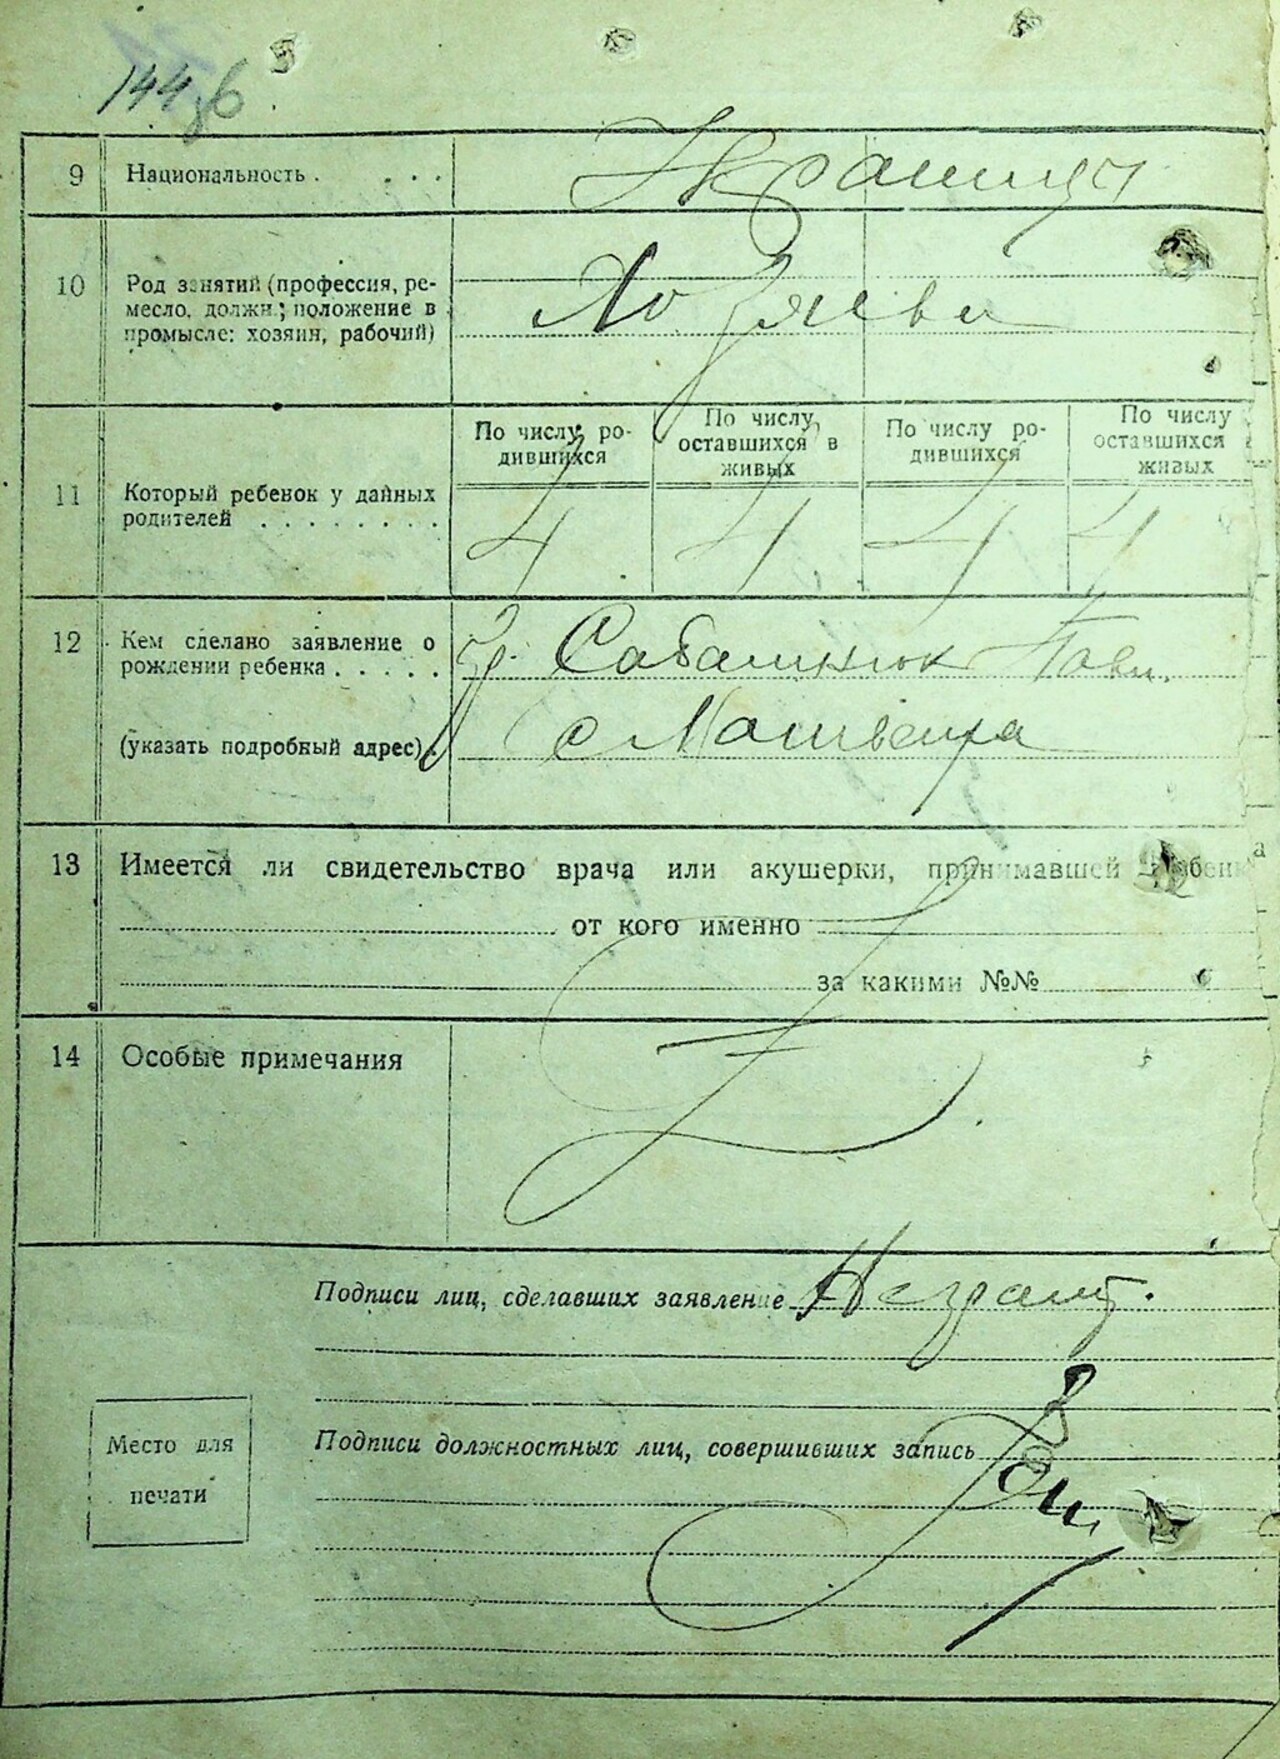 9 Национальность . . . . Украинцы
10 Род занятий (профессия, ре-
месло, должн.; положение в
промысле: хозяин, рабочий)
Хозяева
11 Который ребенок у данных
родителей . . . . . . . .
По числу ро-
дившихся
По числу
оставшихся в
живых
По числу ро-
дившихся
По числу
оставшихся
живых
4 4 4 4
12 Кем сделано заявление о
рождении ребенка . . . . .
(указать подробный адрес) .
гр. Сабашнюк Павл.
с
13 Имеется ли свидетельство врача или акушерки, принимавшей ребенка
от кого именно
за какими №№
14 Особые примечания
Подписи лиц, сделавших заявление Неграмот.
Подписи должностных лиц, совершивших запись
Место для
печати